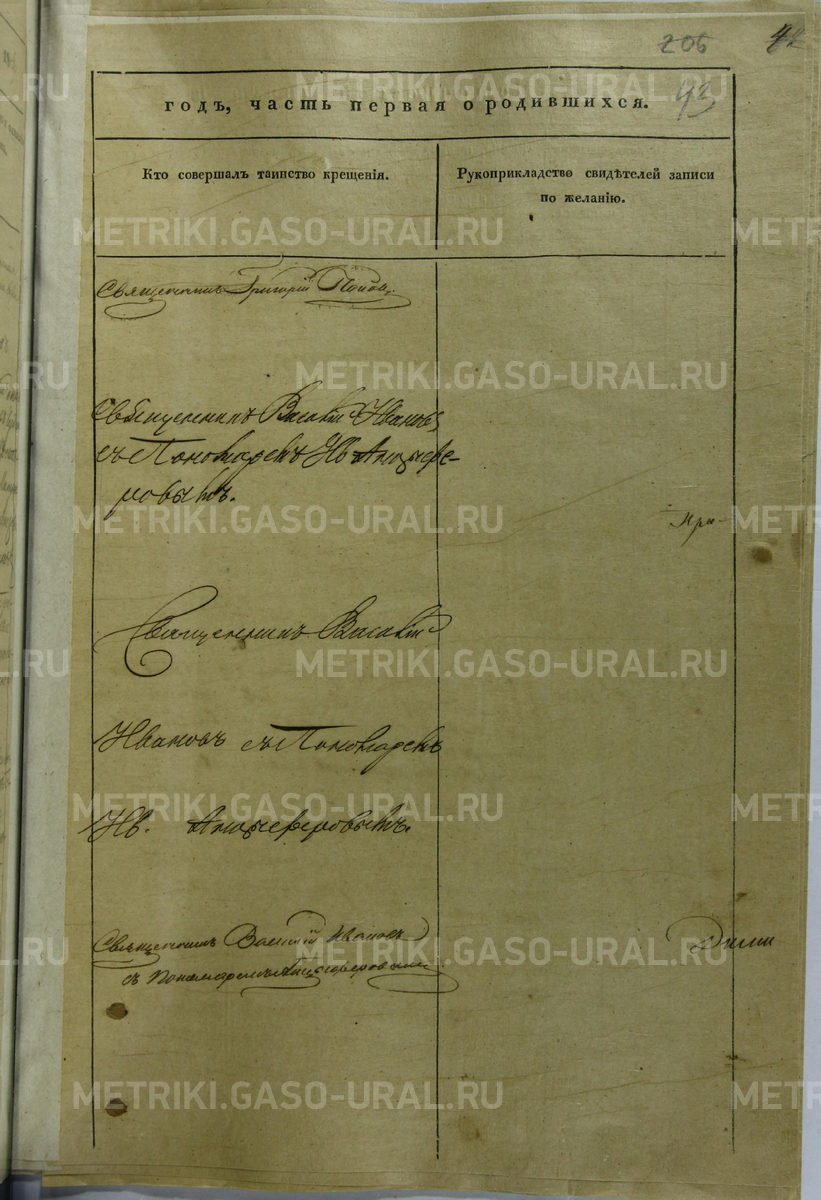 206 42
годъ, часть первая о родившихся. 43
Кто совершалъ таинство крещенія.
Рукоприкладство свидѣтелей записи
по желанію.
Священникъ Григорій Поповъ.
Священникъ Василій Ивановъ
съ Пономаремъ Ив. Анцыфе-
ровымъ.
При-
Священникъ Василій
Ивановъ съ Пономаремъ
Ив. Анцыферовымъ.
Священникъ Василій Ивановъ
съ пономаремъ Анцыферовымъ
METRIKI.GASO-URAL.RU